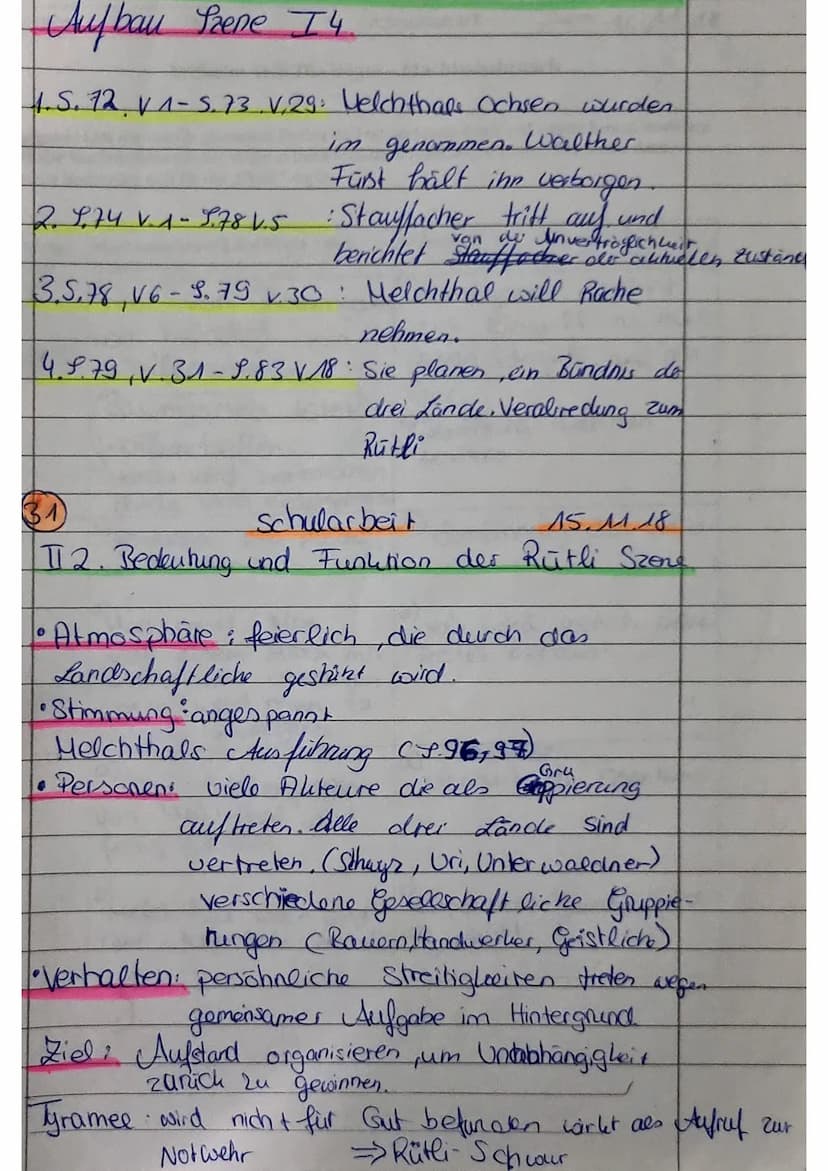 Aufbau Szene I 4
1. S. 72, V 1 - S. 73 V. 29: Melchthals Ochsen wurden
im genommen. Walther
Fürst hält ihn verborgen.
2. S. 74 V. 1 - S. 78 V. 5 : Stauffacher tritt auf und
berichtet von der Unverträglichkeit der aktuellen Zustände
3. S. 78, V 6 - S. 79 V. 30 : Melchthal will Rache
nehmen.
4. S. 79, V. 31 - S. 83 V 18 : Sie planen, ein Bündnis der
drei Lände. Verabredung zum
Rütli
31 Schularbeit 15.11.18
II 2. Bedeutung und Funktion der Rütli Szene
• Atmosphäre : feierlich, die durch das
Landschaftliche gestützt wird.
• Stimmung : angespannt
Melchthals Ausführung (S. 96, 97)
• Personen: viele Akteure die als Gruppierung
auftreten. Alle drei Lände sind
vertreten. (Schwyz, Uri, Unterwaldner)
verschiedene Gesellschaftliche Gruppie-
rungen (Bauern, Handwerker, Geistliche)
• Verhalten: persöhnliche Streitigkeiten treten wegen
gemeinsamer Aufgabe im Hintergrund
Ziel : Aufstand organisieren, um Unabhängigkeit
zurück zu gewinnen.
Tyrannei : wird nicht für Gut befunden wirkt als Aufruf zur
Notwehr => Rütli-Schwur